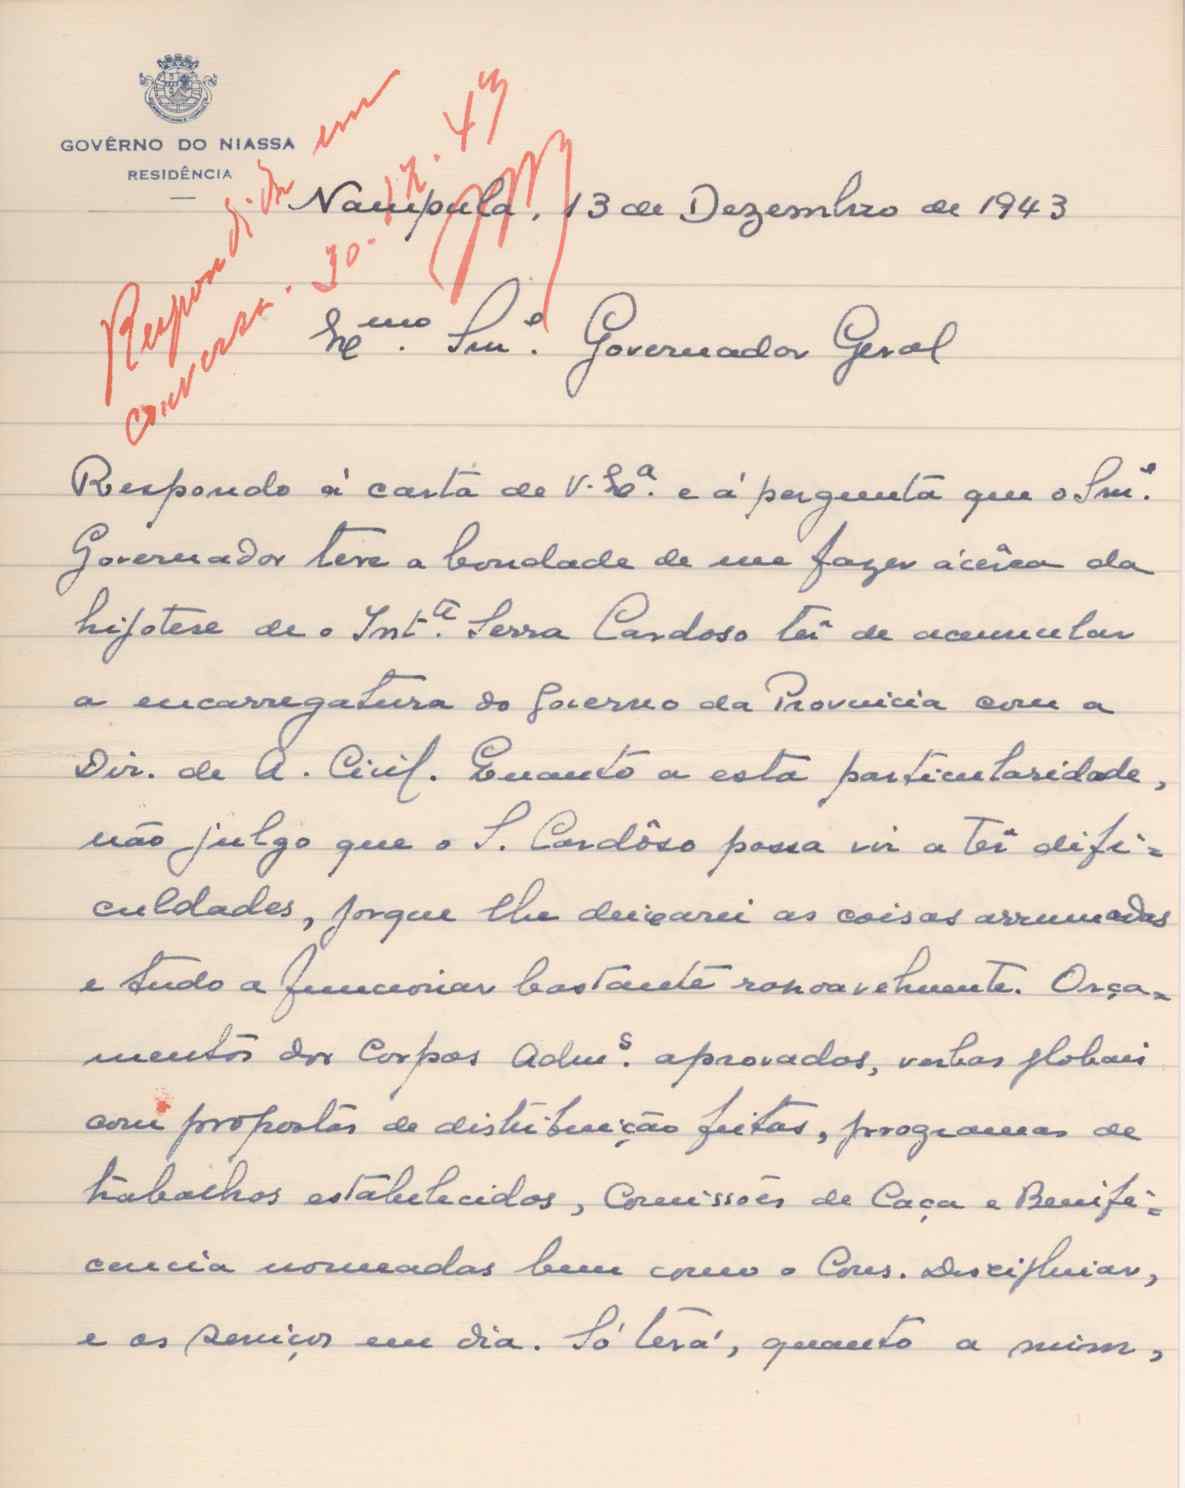 GOVÊRNO DO NIASSA
RESIDÊNCIA
Respondida em
conversa. 30.12.43
Nampula, 13 de Dezembro de 1943
Exmo. Snr. Governador Geral
Respondo á carta de V. Exa. e á pergunta que o Snr.
Governador teve a bondade de me fazer ácêrca da
hipotese de o Inte. Serra Cardoso ter de acumular
a encarregatura do Governo da Provincia com a
Dir. de A. Civil. Quanto a esta particularidade,
não julgo que o S. Cardôso possa vir a ter difi-
culdades, porque lhe deixarei as coisas arrumadas
e tudo a funcionar bastante rasoavelmente. Orça-
mentos dos Corpos Adms. aprovados, verbas globais
com propostas de distribuição feitas, programas de
trabalhos estabelecidos, Comissões de Caça e Benifi-
cencia nomeadas bem como o Cons. Disciplinar,
e os serviços em dia. Só terá, quanto a mim,